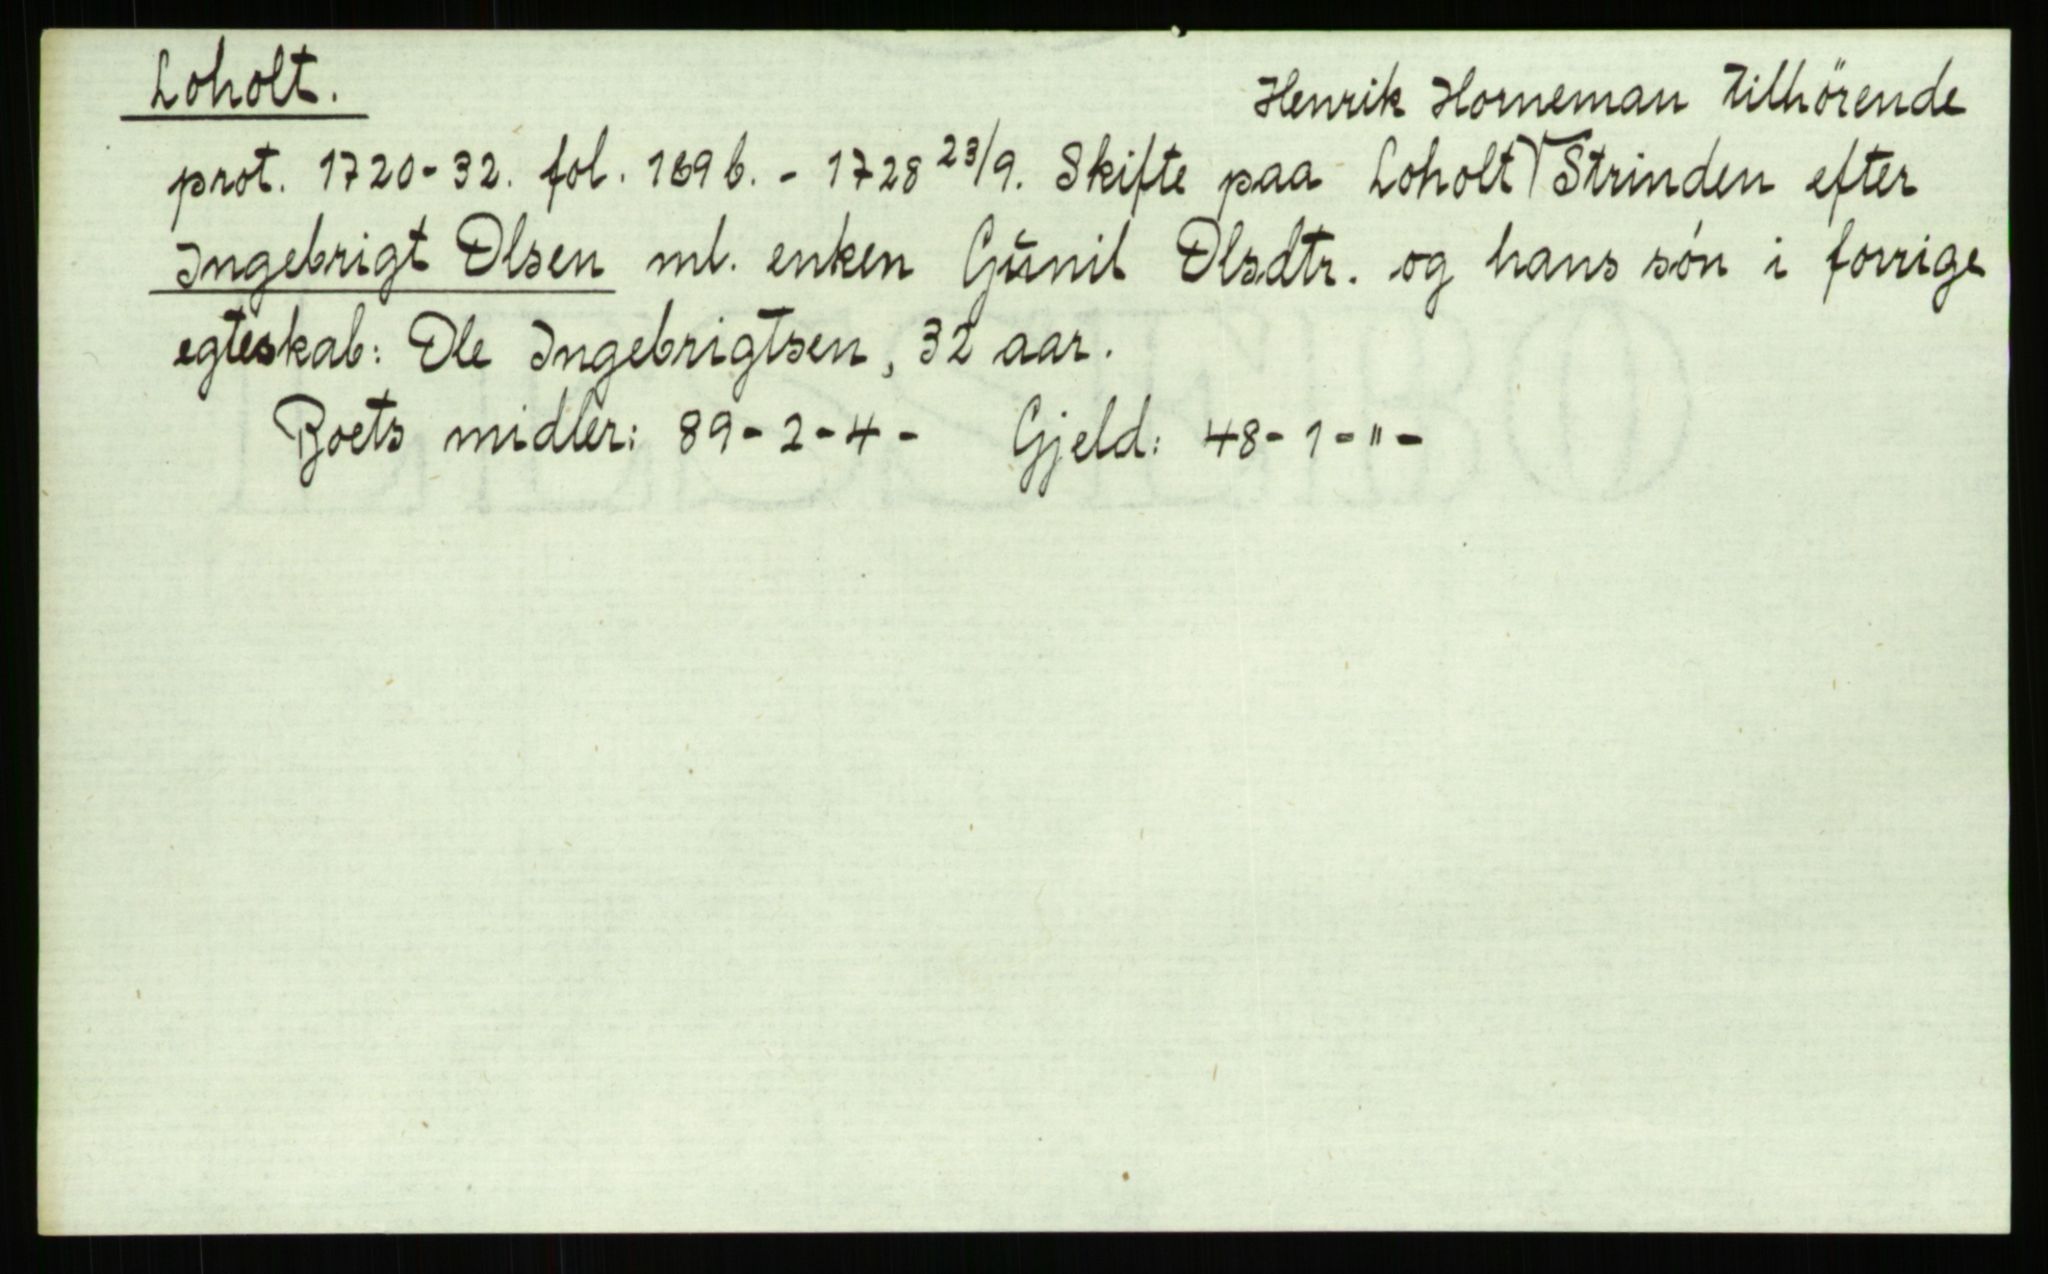 Loholt.
Henrik Horneman tilhörende
prot. 1720-32. fol. 169 b. - 1728 23/9. Skifte paa Loholt √ Strinden efter
Ingebrigt Olsen ml. enken Gŭnil Olsdtr. og hans són i forrige
egteskab: Ole Ingebrigtsen, 32 aar.
Boets midler: 89-2-4- Gjeld: 48-1-"-